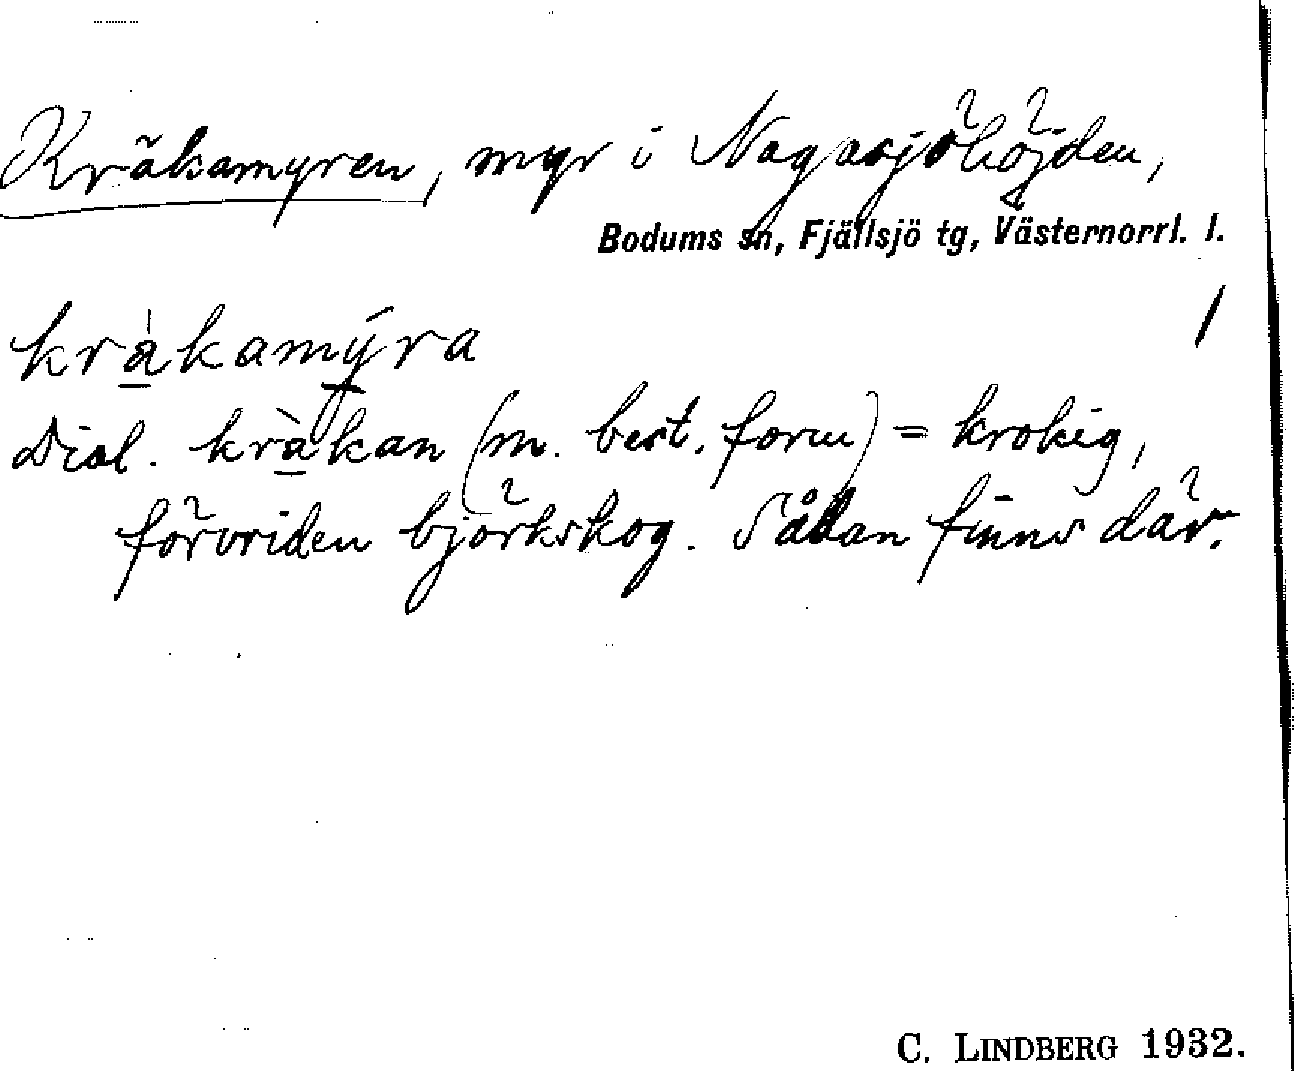 Kräkamyren, myr i Nagasjöhöjden,
Bodums sn, Fjällsjö tg, Västernorrl. l.
1
kràkamýra
Dial. kràkan (m. best. form) = krokig,
förvriden björkskog. Sådan finns där.
C. LINDBERG 1932.